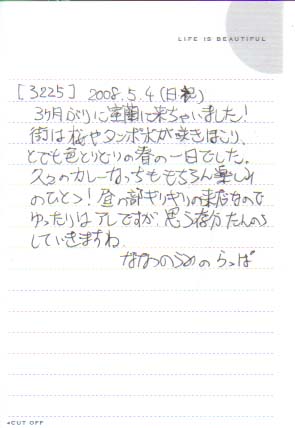 LIFE IS BEAUTIFUL
[3225] 2008.5.4(日祝)
3ヶ月ぶりに室蘭に来ちゃいました!
街は桜やタンポポが咲きほこり、
とても色とりどりの春の一日でした。
久々のカレーなっちももちろん楽しみ
のひとつ!昼の部ギリギリの来店なので
ゆったりは アレですが、思う存分たんのう
していきますね
ななつのうめの らっぱ
◂CUT OFF